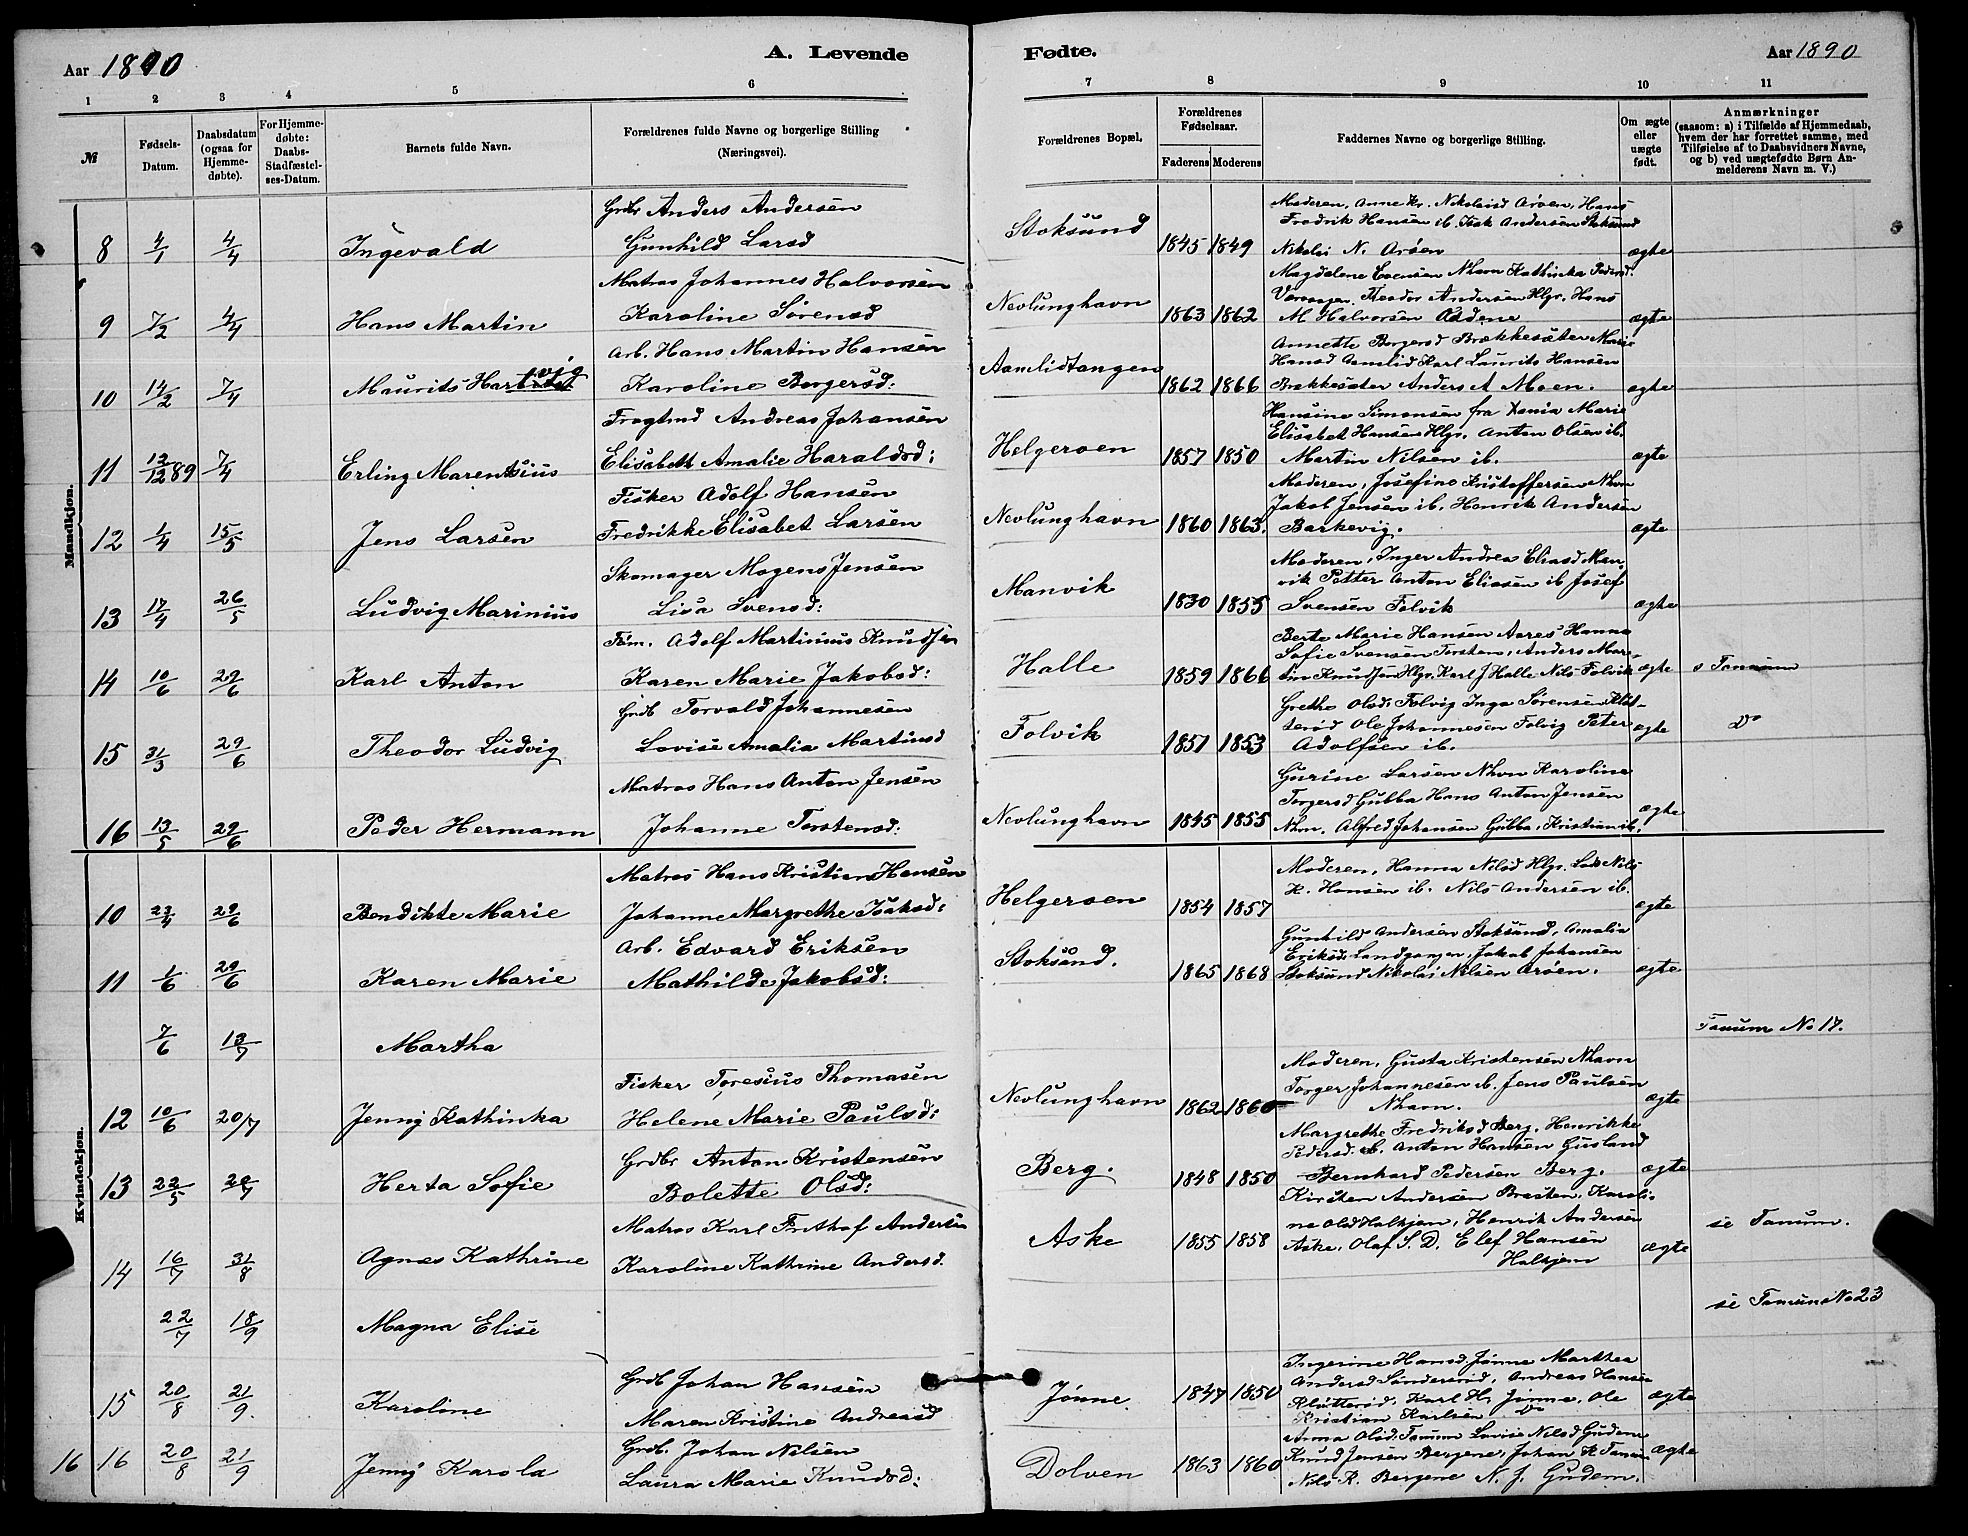 Aar 1890
A. Levende
1 2 3 4 5 6
№
Fødsels-Datum.
Daabsdatum (ogsaa for Hjemmedøbte).
For Hjemmedøbte: Daabs-Stadfæstelses-Datum.
Barnets fulde Navn.
Forældrenes fulde Navne og borgerlige Stilling
(Næringsvei).
Mandkjøn.
Grbr Anders Andersen
8 4/1 4/4 Ingevald Gunhild Larsd
Matros Johannes Halvorsen
9 7/2 4/4 Hans Martin Karoline Sørensd
Arb. Hans Martin Hansen
10 14/2 7/4 Maurits Hartvig Karoline Borgersd:
Fragtmd Andreas Johansen
11 12/12 89 7/4 Erling Marentsius Elisabeth Amalie Haraldsd:
Fisker Adolf Hansen
12 1/4 15/5 Jens Larsen Fredrikke Elisabet Larsen
Skomager Mogens Jensen
13 17/4 26/5 Ludvig Marinius Lisa Svensd:
Tøm. Adolf Martinius Knudsen
14 10/6 29/6 Karl Anton Karen Marie Jakobsd:
Grdb Torvald Johannesen
15 31/3 29/6 Theodor Ludvig Lovise Amalia Martinsd
Matros Hans Anton Jensen
16 13/5 29/6 Peder Hermann Johanne Torstensd:
Kvindekjøn.
Matros Hans Kristian Hansen
10 23/4 29/6 Bendikte Marie Johanne Margrethe Isaksd:
Arb. Edvard Eriksen
11 1/6 29/6 Karen Marie Mathilde Jakobsd:
7/6 13/7 Martha
Fisker Toresius Thomasen
12 10/6 20/7 Jenny Kathinka Helene Marie Paulsd:
Grdbr Anton Kristensen
13 22/5 20/7 Herta Sofie Bolette Olsd:
Matros Karl Frithof Andersen
14 16/7 31/8 Agnes Kathrine Karoline Kathrine Andersd.
22/7 18/9 Magna Elise
Grdb Johan Hansen
15 20/8 21/9. Karoline Maren Kristine Andreasd
Grdb. Johan Nilsen
16 16 20/8 21/9 Jenny Karola Laura Marie Knudsd:
Fødte.
Aar 1890
7 8 9 10 11
Forældrenes Bopæl.
Forældrenes Fødselsaar.
Faderens Moderens
Faddernes Navne og borgerlige Stilling.
Om ægte eller uægte født.
Anmærkninger
(saasom: a) i Tilfælde af Hjemmedaab,
hvem der har forrettet samme, med
Tilføielse af to Daabsvidners Navne,
og b) ved uægtefødte Børn Anmelderens Navn m. V.)
Moderen, Anne Kr. Nikolaisd Arøen, Hans
Fredrik Hansen ib. Isak Andersen Stoksund
Stoksund 1845 1849 Nikolai N. Arøen ægte
Magdelene Evensen Nhavn Kathinka Pedersd.
Theodor Andersen Hlgr. Hans
Nevlunghavn 1863 1862 M Halvorsen Odden ægte
Annette Borgersd Brækkesæter Marie
Hansd Aamlid Karl Laurits Hansen
Aamlidtangen 1862 1866 Brækkesæter Anders A Moen. ægte
Hansine Simonsen fra Xania Marie
Elisabet Hansen Hlgr. Anton Olsen ib.
Helgeroen 1857 1850 Martin Nilsen ib. ægte
Moderen, Josefine Kristoffersen Nhvn
Jakob Jensen ib. Henrik Andersen
Nevlunghavn 1860 1863. Barkevig. ægte
Moderen, Inger Andrea Eliasd Man-
vik Petter Anton Eliasen ib. Josef
Manvik 1830 1855 Svensen Folvik ægte
Berte Marie Hansen Aares Hanna
Sofie Svensen Torsten, Anders Mar-
Halle 1859 1866 tin Knudsen Hlgr. Karl J Halle Nils Folvik ægte s Tanum
Grethe Olsd. Folvig Inga Sørensen Klåt-
terød Ole Johannesen Folvig Peter
Folvik 1857 1853 Adolfsen ib. ægte Do
Gurine Larsen Nhvn Karoline
Torgersd Gubba Hans Anton Jensen
Nevlunghavn 1845 1855 Nhvn. Alfred Johansen Gubba, Kristian ib. ægte
Moderen, Hanna Nilsd Hlgr. Nils
Helgeroen 1854 1857 H. Hansen ib. Nils Andersen ib. ægte
Gunhild Andersen Stoksund, Amalia
Eriksd. Landgangen, Jakob Johansen
Stoksund. 1865 1868 Stoksund Nikolai Nilsen Arøen. ægte
Tanum No 17.
Moderen, Gusta Kristensen Nhavn
Torger Johannesen ib. Jens Paulsen
Nevlunghavn 1862 1860 Nhavn. ægte
Margrethe Fredriksd Berg, Henrikke
Pedersd. ib. Anton Hansen Gusland
Berg. 1848 1850 Bernhard Pedersen Berg. ægte
Kirsten Andersen Brasten, Karoli-
ne Olsd Halkjem, Henrik Andersen
Aske 1855 1858 Aske, Olaf S. D. Elef Hansen
Halkjem ægte se Tanum.
se Tanum No 23
Ingerine Hansd. Jønne Marthea
Andersd Søndersrød, Andreas Hansen
Jønne 1847 1850 Klåtterød, Karl H. Jønne, Ole ægte
Kristian Karlsen Do
Anna Olsd. Tanum Lovise Nilsd Gudem
Dolven 1863 1860 Knud Jensen Bergene, Johan K Tanum ægte
Nils R. Bergene N. J. Gudem.